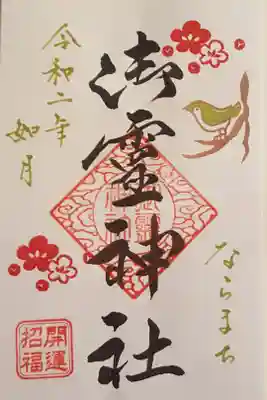 御靈神社
ならまち
令和二年
如月
開運
招福